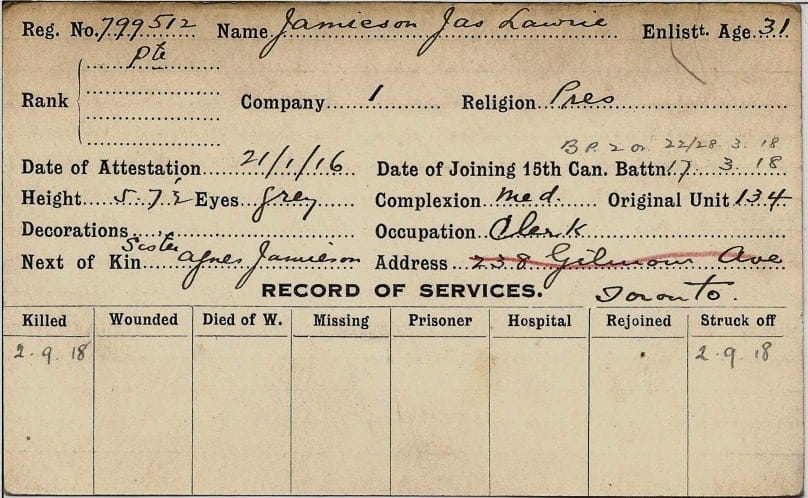 Reg. No. 799512 Name Jamieson Jas Lawrie Enlistt. Age 31
Pte
Rank Company 1 Religion Pres
B.P. 2 or. 22/28. 3. 18
Date of Attestation 21/1/16 Date of Joining 15th Can. Battn. 17 3. 18
Height 5. 7 ½ Eyes grey Complexion Med. Original Unit 134
Decorations Occupation Clerk
Sister
Next of Kin Agnes Jamieson Address 238 Gilmour Ave
RECORD OF SERVICES. Toronto.
Killed Wounded Died of W. Missing Prisoner Hospital Rejoined Struck off
2. 9. 18 2. 9. 18